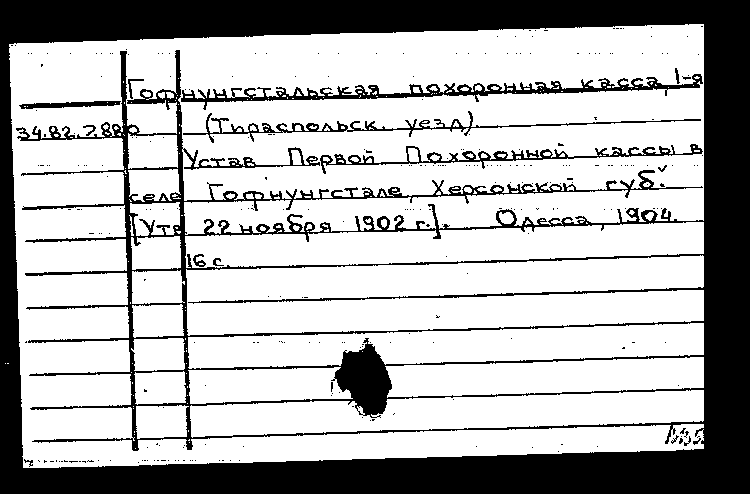 Гофнунгстальская похоронная касса, 1-я
34.82.7.880 (Тираспольск. уезд).
Устав Первой Похоронной кассы в
селе Гофнунгстале, Херсонской губ.
[Утв 22 ноября 1902 г.]. Одесса, 1904.
16 с.